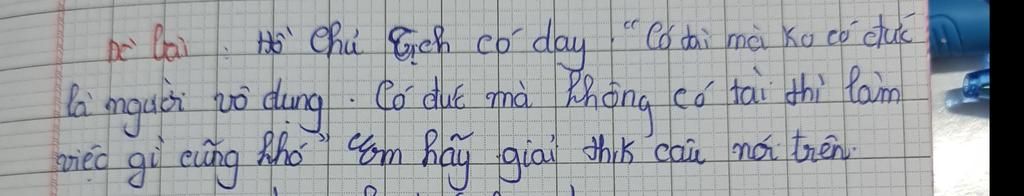 Đề bài : Hồ Chủ Tịch có dạy "Có tài mà ko có đức
là người vô dụng. Có đức mà không có tài thì làm
việc gì cũng khó" em hãy giải thik câu nói trên.